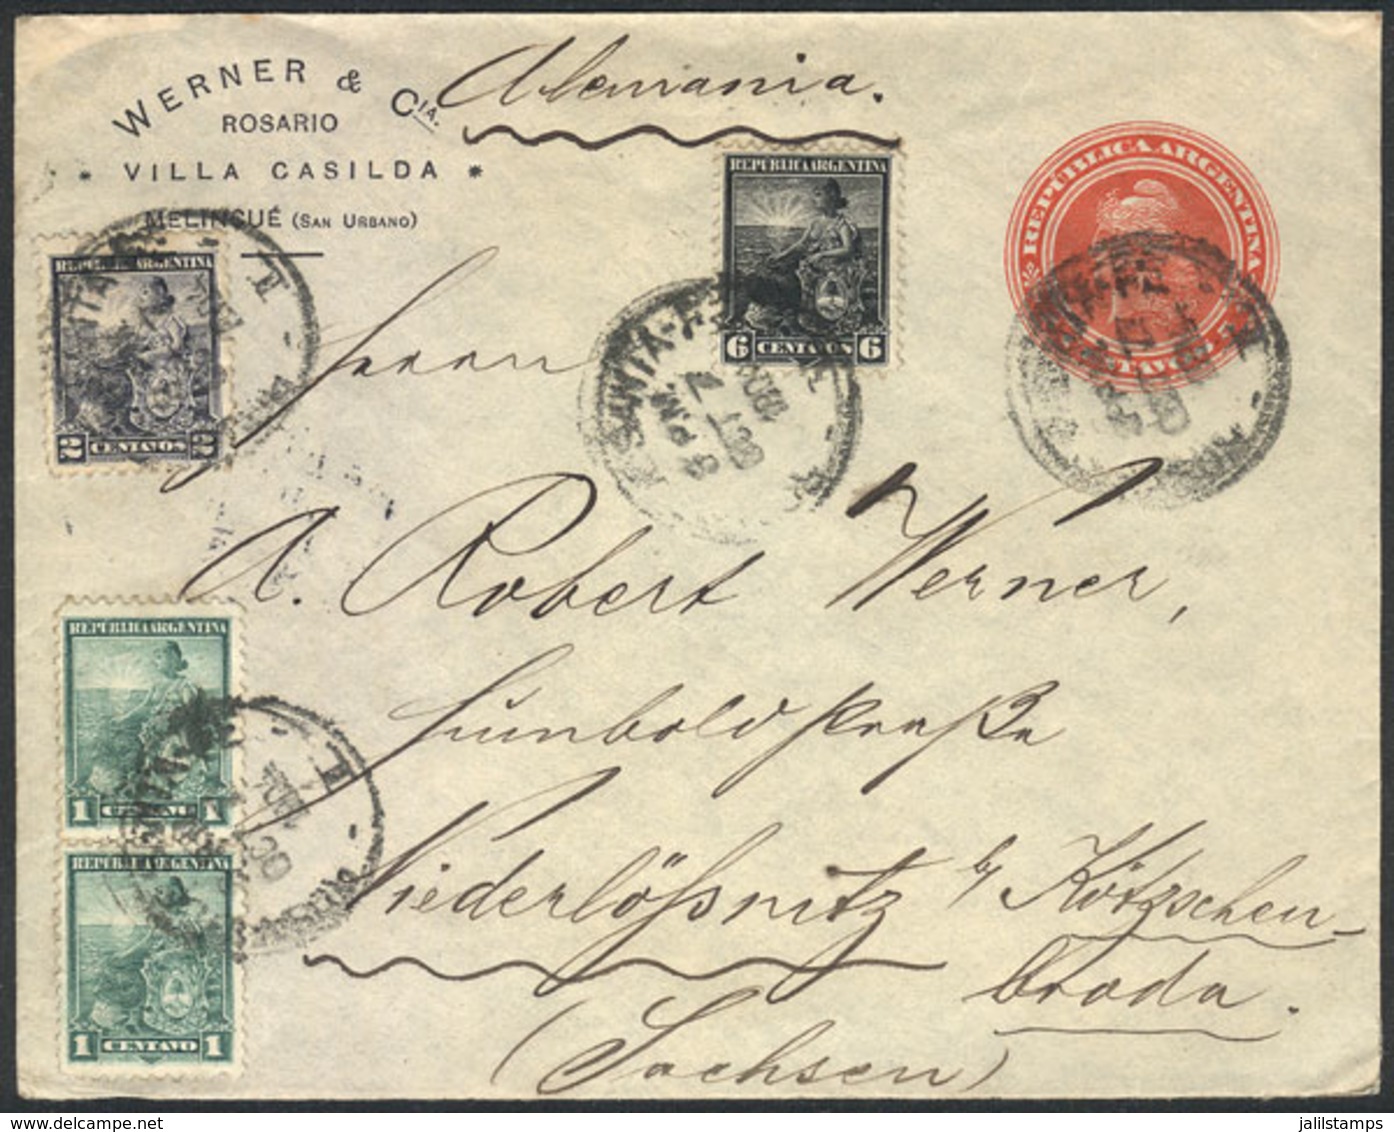 WERNER & CIA.
ROSARIO
* VILLA CASILDA *
MELINCUÉ (SAN URBANO)
Alemania.
REPUBLICA ARGENTINA
6 CENTAVOS 6
REPÚBLICA ARGENTINA
REPUBLICA ARGENTINA
2 CENTAVOS 2
SANTA-FE
8 PM
Herrn
A. Robert Werner,
Humboldstraße
Niederlößnitz b/ Kötzschen-
broda.
(Sachsen)
REPUBLICA ARGENTINA
1 CENTAVO 1
REPUBLICA ARGENTINA
1 CENTAVO 1
jalilstamps